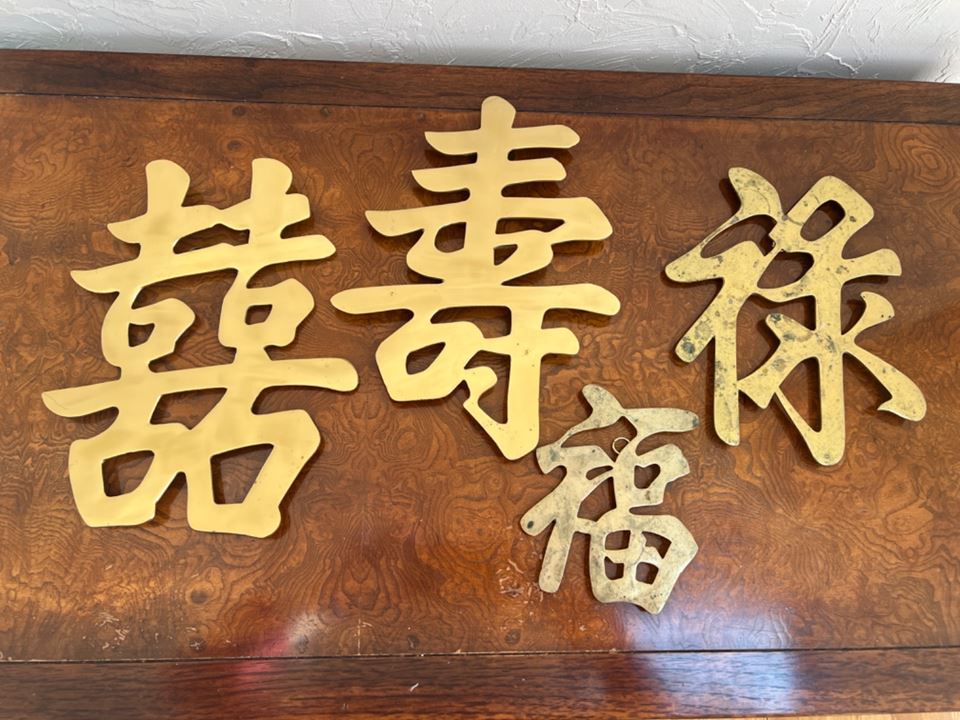 囍
壽
祿
福